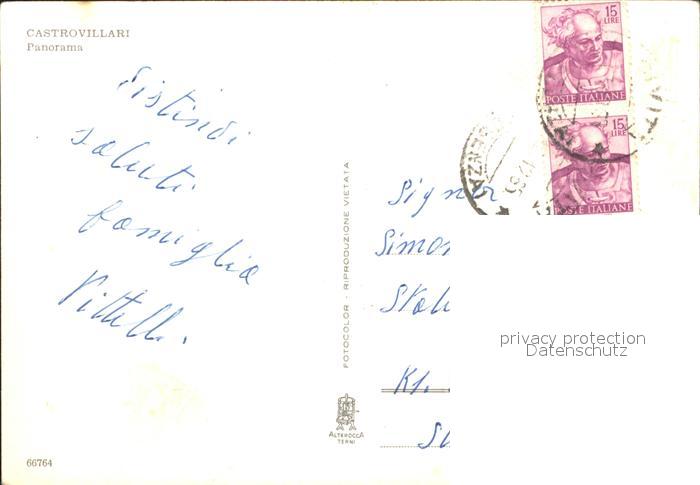 CASTROVILLARI
Panorama
Distinti
saluti
famiglia
Vittelli.
FOTOCOLOR - RIPRODUZIONE VIETATA
ALTEROCCA
TERNI
66764
15
LIRE
POSTE ITALIANE
15
LIRE
POSTE ITALIANE
Signor
Simon
Kl.
privacy protection
Datenschutz